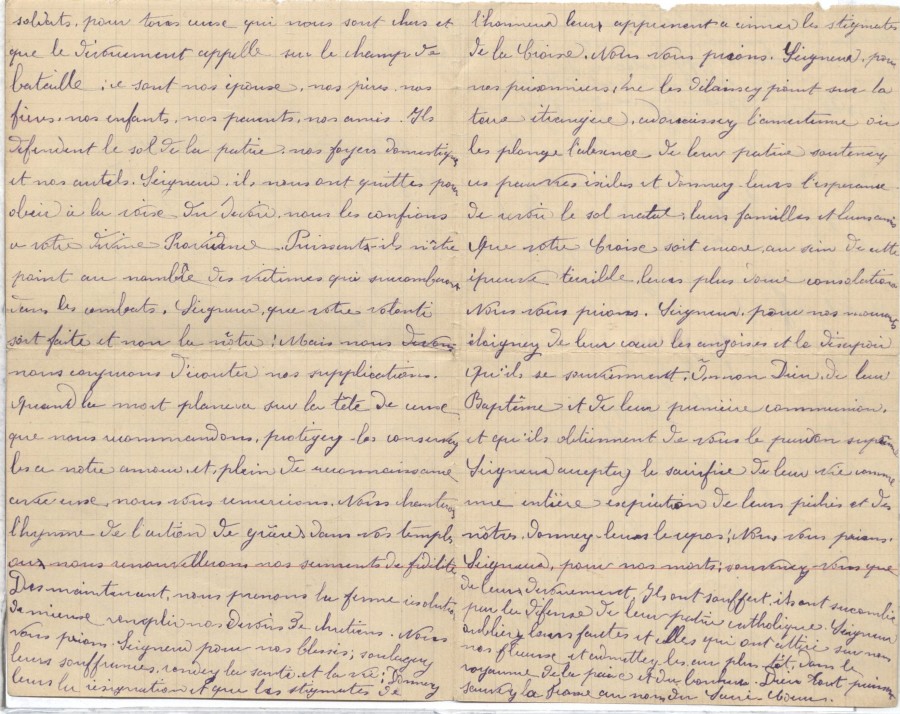 soldats, pour tous ceux qui nous sont chers et
que le dévouement appelle sur le champ de
bataille ; ce sont nos épouse, nos pères, nos
frères, nos enfants, nos parents, nos amis. Ils
défendent le sol de la patrie, nos foyers domestiques
et nos autels. Seigneur, ils nous ont quittés pour
obéir à la voise du devoir, nous les confions
a votre divine Providence. Puissent-ils n'être
point au nombre des victimes qui succombent
dans les combats. Seigneur, que votre volonté
soit faite et non la nôtre ! Mais nous
nous conjurons d'écouter nos supplications.
Quand la mort planera sur la tête de ceuse
que nous recommandons, protégez-les conservez
les a notre amour, et, plein de reconnaissance
avec euse, nous vous remercions. Nous chanterons
l'hymne de l'action de grâce dans vos temples
nous renouvellerons nos serments de fidélité
Dès maintenant, nous prenons la ferme
de mieuse remplir nos devoirs de chrétiens. Nous
vous prions Seigneur pour nos blessés ; soulagez
leurs souffrances, rendez la santé et la vie ; Donnez
leurs la résignation et que les stigmates de
l'honneur leurs apprennent a aimer les stigmates
de la Croise. Nous vous prions, Seigneur, pour
nos prisonniers, ne les délaissez point sur la
tere étrangère, adoucissez l'amertume où
les plonge l'absence de leur patrie soutenez
ces pauvres exilés et donnez-leurs l'espérance
de revoir le sol natal, leurs familles et leurs amis
Que votre Croise soit encore, au sein de cette
épreuve terrible, leurs plus douce consolation
Nous vous prions, Seigneur, pour nos mourants
éloignez de leur cœur les angoises et le désespoir
Qu'ils se souviennent, Ô mon Dieu, de leur
Baptême et de leur première communion,
et qu'ils obtiennent de vous le pardon suprême
Seigneur acceptez le sacrifice de leur vie comme
une entière expiation de leurs péchés et des
nôtres, donnez-leurs le repos ! Nous vous prions,
Seigneur, pour nos morts ; souvenez-vous que
de leurs dévouement, Ils ont souffert, ils ont succombé
par la défense de leur patrie catholique. Seigneur
oubliez leurs fautes et elles qui ont attiré sur nous
et admettez les au plus tôt, dans le
royaume de la paix et du bonheur. Dieu tout puissant
sauvez la France au nom du Sacré-Cœur.